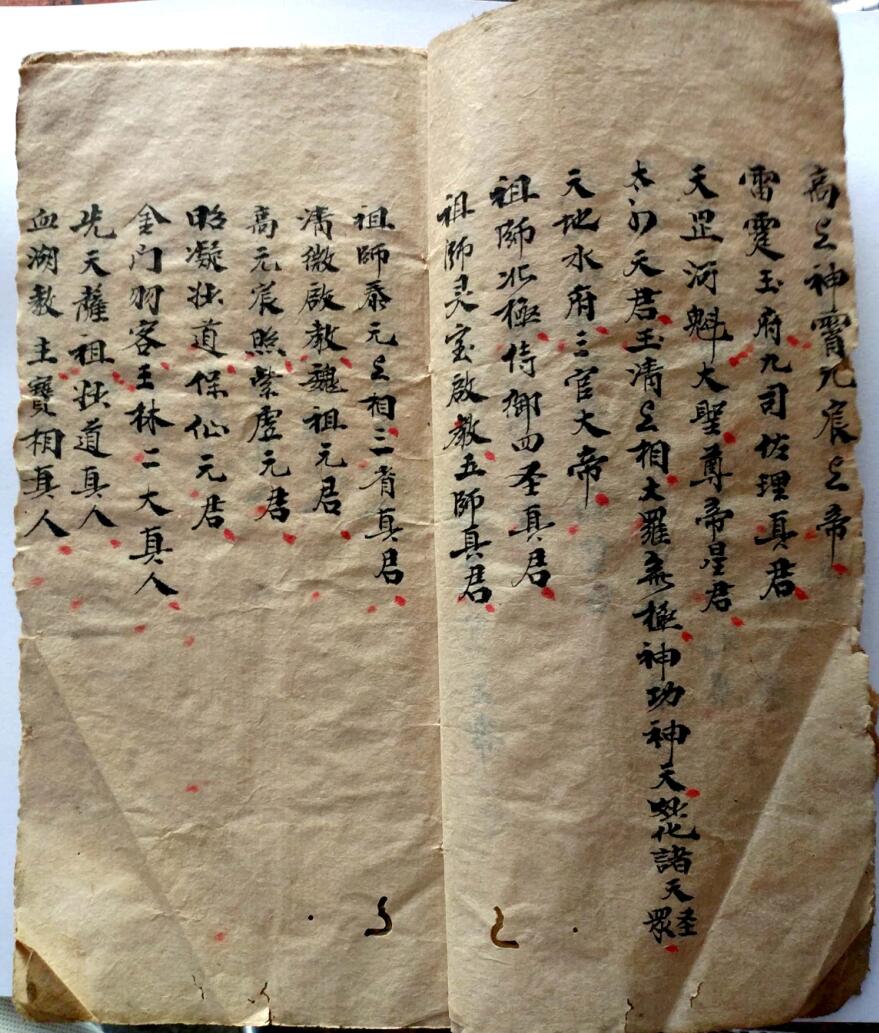 高上神霄九宸上帝
雷霆玉府九司佐理真君
天罡河魁大聖尊帝星君
太乙天君玉清上相大羅無極神功神天妙化諸天聖眾
天地水府三官大帝
祖師北極侍御四圣真君
祖師灵宝啟教五師真君
祖師泰元上相三省真君
清微啟教魏祖元君
高元宸照紫虛元君
昭凝妝道保仙元君
金門羽客王林二大真人
先天薩祖妝道真人
血湖教主寶相真人